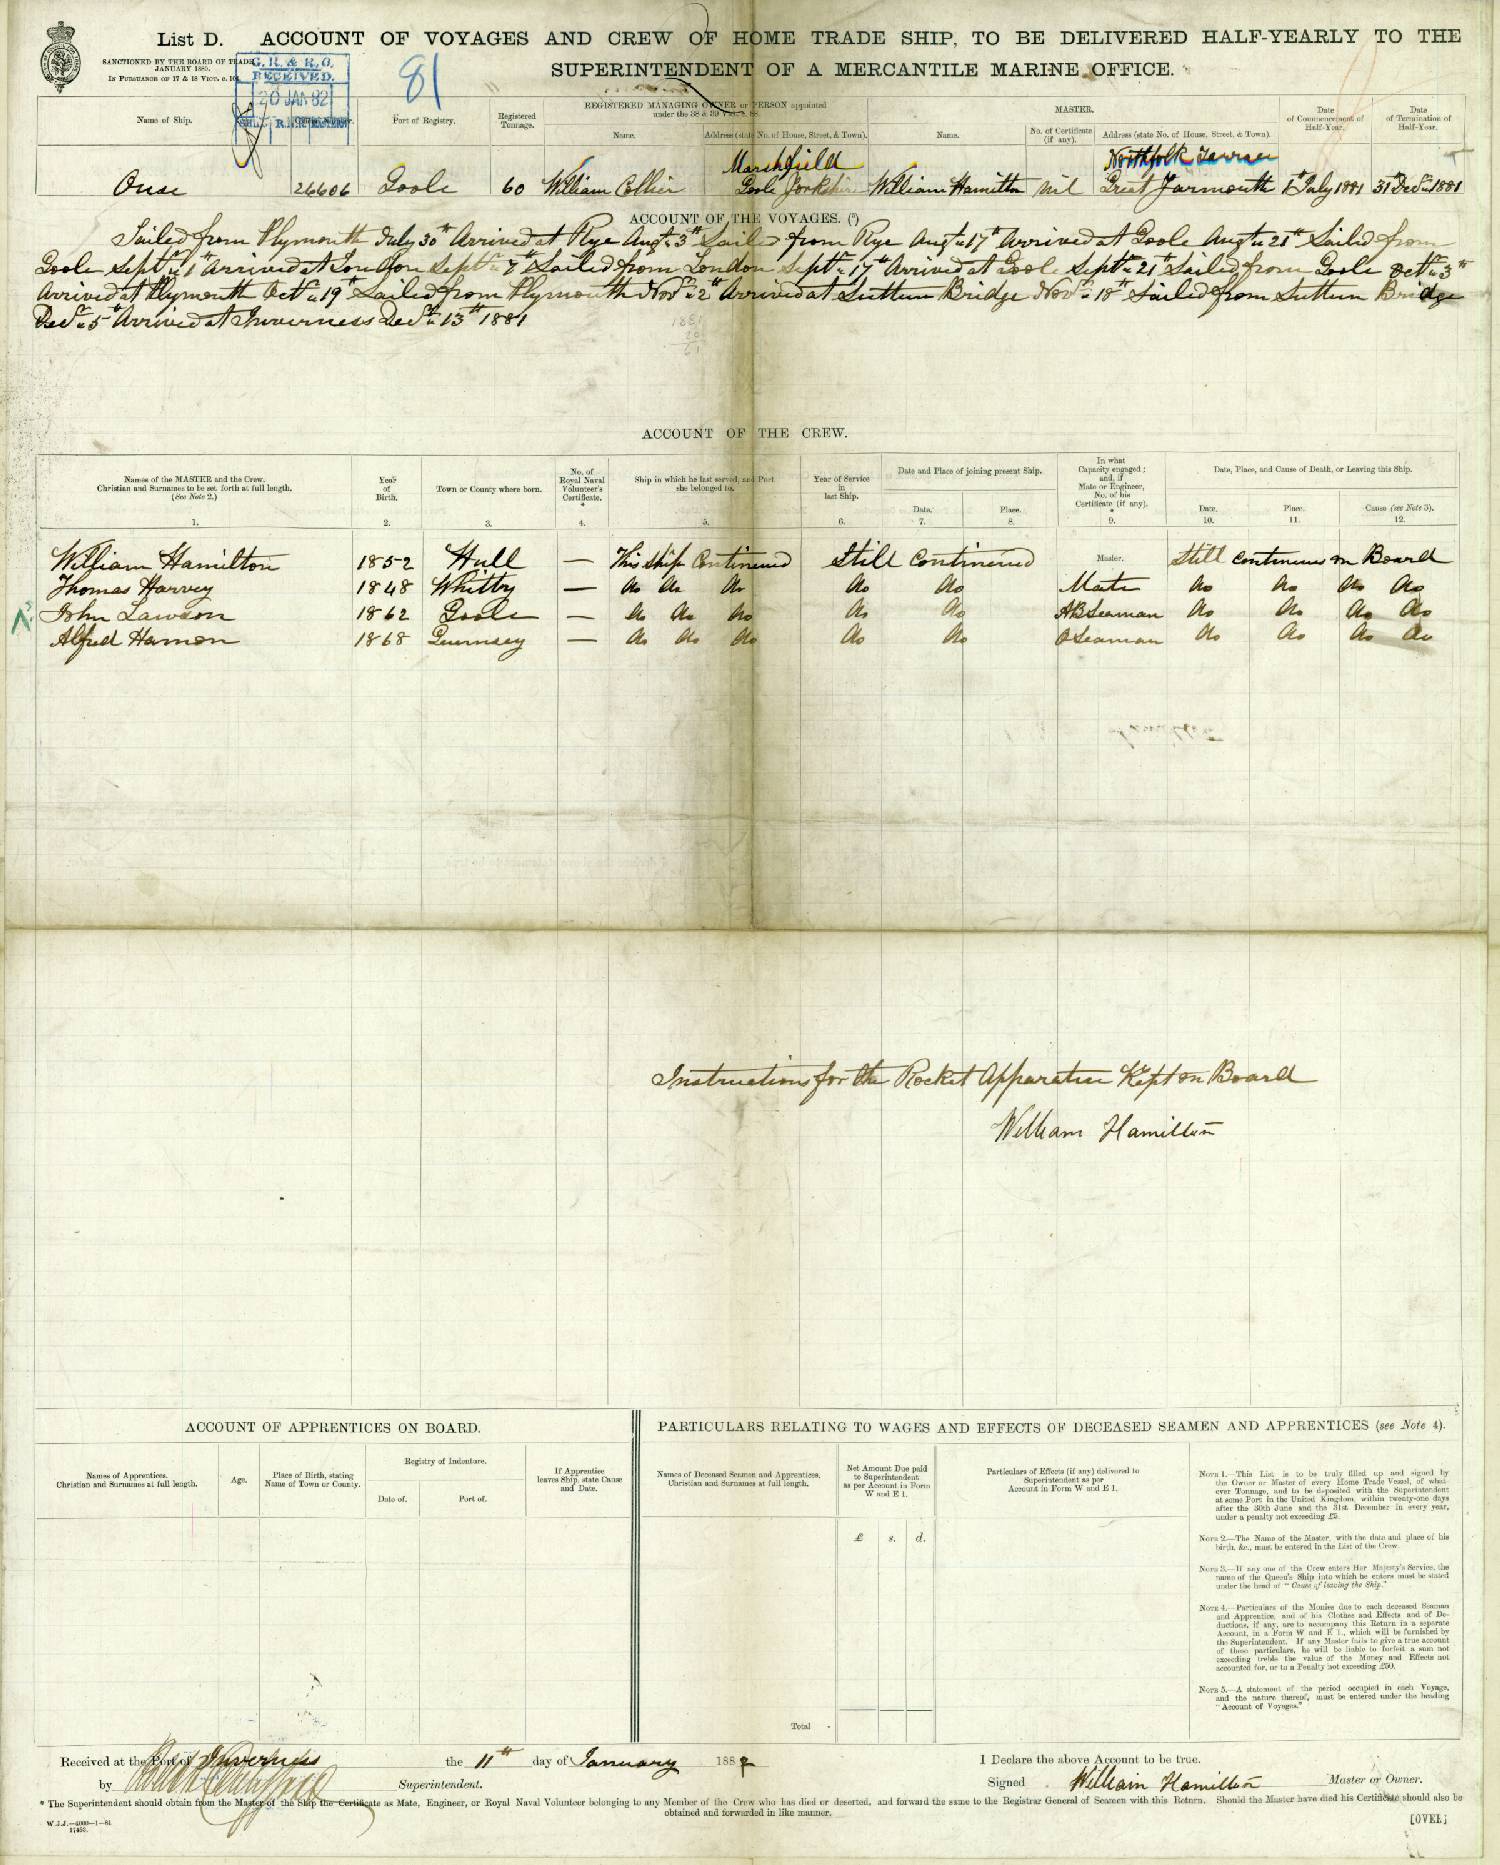 List D. ACCOUNT OF VOYAGES AND CREW OF HOME TRADE SHIP, TO BE DELIVERED HALF-YEARLY TO THE
SUPERINTENDENT OF A MERCANTILE MARINE OFFICE.
SANCTIONED BY THE BOARD OF TRADE
JANUARY 1880.
IN PURSUANCE OF 17 & 18 VICT. c. 104.
RECEIVED.
20 JAN 82
81
Name of Ship.
Official Number.
Port of Registry.
Registered Tonnage.
REGISTERED MANAGING OWNER or PERSON appointed
under the 38 & 39 Vict. c. 88.
Name.
Address (state No. of House, Street, & Town).
MASTER.
Name.
No. of Certificate (if any).
Address (state No. of House, Street, & Town).
Date of Commencement of Half-Year.
Date of Termination of Half-Year.
Marshfield
Northfolk Terrace
Ouse 26606 Goole 60 William Collier Goole Yorkshire William Hamilton nil Great Yarmouth 1st July 1881 31st Decr 1881
ACCOUNT OF THE VOYAGES. (5)
Sailed from Plymouth July 30th Arrived at Rye Augt 3rd Sailed from Rye Augt 17th Arrived at Goole Augt 21st Sailed from
Goole Septr 1st Arrived at London Septr 7th Sailed from London Septr 17th Arrived at Goole Septr 21st Sailed from Goole Octr 3rd
Arrived at Plymouth Octr 19th Sailed from Plymouth Novr 2nd Arrived at Suttum Bridge Novr 18th Sailed from Suttum Bridge
Decr 5th Arrived at Inverness Decr 13th 1881
1881
20
61
ACCOUNT OF THE CREW.
Names of the MASTER and the Crew.
Christian and Surnames to be set forth at full length.
(See Note 2.)
Year of Birth.
Town or County where born.
No. of Royal Naval Volunteer's Certificate. *
Ship in which he last served, and Port she belonged to.
Year of Service in last Ship.
Date and Place of joining present Ship.
Date.
Place.
In what Capacity engaged; and, if Mate or Engineer, No. of his Certificate (if any). *
Date, Place, and Cause of Death, or Leaving this Ship.
Date.
Place.
Cause (see Note 3).
1. 2. 3. 4. 5. 6. 7. 8. 9. 10. 11. 12.
William Hamilton 1852 Hull — This ship Continued Still Continued Master. Still continues on Board
Thomas Harvey 1848 Whitby — do do do do do Mate do do do do
John Lawson 1862 Goole — do do do do do AB Seaman do do do do
Alfred Hamon 1868 Guernsey — do do do do do O Seaman do do do do
Instructions for the Rocket Apparatus Kept on Board
William Hamilton
ACCOUNT OF APPRENTICES ON BOARD.
Names of Apprentices.
Christian and Surnames at full length.
Age.
Place of Birth, stating Name of Town or County.
Registry of Indenture.
Date of.
Port of.
If Apprentice leaves Ship, state Cause and Date.
PARTICULARS RELATING TO WAGES AND EFFECTS OF DECEASED SEAMEN AND APPRENTICES (see Note 4).
Names of Deceased Seamen and Apprentices.
Christian and Surnames at full length.
Net Amount Due paid to Superintendent as per Account in Form W and E 1.
£ s. d.
Particulars of Effects (if any) delivered to Superintendent as per Account in Form W and E 1.
Total
NOTE 1.—This List is to be truly filled up and signed by
the Owner or Master of every Home Trade Vessel, of what-
ever Tonnage, and to be deposited with the Superintendent
at some Port in the United Kingdom, within twenty-one days
after the 30th June and the 31st December in every year,
under a penalty not exceeding £5.
NOTE 2.—The Name of the Master, with the date and place of his
birth, &c., must be entered in the List of the Crew.
NOTE 3.—If any one of the Crew enters Her Majesty's Service, the
name of the Queen's Ship into which he enters must be stated
under the head of "Cause of leaving the Ship."
NOTE 4.—Particulars of the Monies due to each deceased Seaman
and Apprentice, and of his Clothes and Effects and of De-
ductions, if any, are to accompany this Return in a separate
Account, in a Form W and E 1., which will be furnished by
the Superintendent. If any Master fails to give a true account
of these particulars, he will be liable to forfeit a sum not
exceeding treble the value of the Money and Effects not
accounted for, or to a Penalty not exceeding £50.
NOTE 5.—A statement of the period occupied in each Voyage,
and the nature thereof, must be entered under the heading
"Account of Voyages."
Received at the Port of Inverness the 11th day of January 1882
by Superintendent.
I Declare the above Account to be true.
Signed William Hamilton Master or Owner.
* The Superintendent should obtain from the Master of the Ship the Certificate as Mate, Engineer, or Royal Naval Volunteer belonging to any Member of the Crew who has died or deserted, and forward the same to the Registrar General of Seamen with this Return. Should the Master have died his Certificate should also be
obtained and forwarded in like manner.
[OVER]